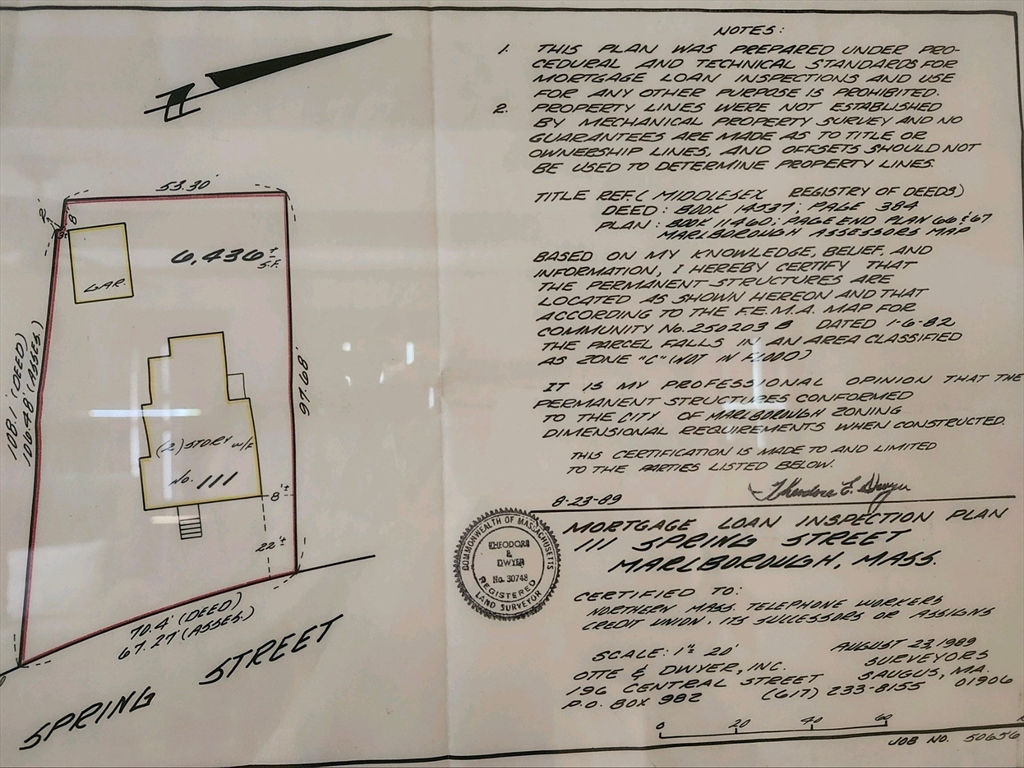 NOTES:
1. THIS PLAN WAS PREPARED UNDER PRO-
CEDURAL AND TECHNICAL STANDARDS FOR
MORTGAGE LOAN INSPECTIONS AND USE
FOR ANY OTHER PURPOSE IS PROHIBITED.
2. PROPERTY LINES WERE NOT ESTABLISHED
BY MECHANICAL PROPERTY SURVEY AND NO
GUARANTEES ARE MADE AS TO TITLE OR
OWNERSHIP LINES, AND OFFSETS SHOULD NOT
BE USED TO DETERMINE PROPERTY LINES.
TITLE REF. ( MIDDLESEX REGISTRY OF DEEDS)
DEED: BOOK 14337: PAGE 384
PLAN: BOOK 11460: PAGE END PLAN 66 & 67
MARLBOROUGH ASSESSORS MAP
BASED ON MY KNOWLEDGE, BELIEF, AND
INFORMATION, I HEREBY CERTIFY THAT
THE PERMANENT STRUCTURES ARE
LOCATED AS SHOWN HEREON AND THAT
ACCORDING TO THE F.E.M.A. MAP FOR
COMMUNITY No. 250203 B DATED 1-6-82
THE PARCEL FALLS IN AN AREA CLASSIFIED
AS ZONE "C" (NOT IN FLOOD)
IT IS MY PROFESSIONAL OPINION THAT THE
PERMANENT STRUCTURES CONFORMED
TO THE CITY OF MARLBOROUGH ZONING
DIMENSIONAL REQUIREMENTS WHEN CONSTRUCTED.
THIS CERTIFICATION IS MADE TO AND LIMITED
TO THE PARTIES LISTED BELOW.
8-23-89
Theodore E. Dwyer
MORTGAGE LOAN INSPECTION PLAN
111 SPRING STREET
MARLBOROUGH, MASS.
CERTIFIED TO:
NORTHERN MASS. TELEPHONE WORKERS
CREDIT UNION, ITS SUCCESSORS OR ASSIGNS
SCALE: 1"= 20'
AUGUST 23, 1989
OTTE & DWYER, INC. SURVEYORS
196 CENTRAL STREET SAUGUS, MA.
P.O. BOX 982 (617) 233-8155 01906
0 20 40 60
JOB NO. 50656
COMMONWEALTH OF MASSACHUSETTS
THEODORE
E
DWYER
No. 30748
REGISTERED
LAND SURVEYOR
53.30'
2'
8
GAR.
6,436±
S.F.
108.1 (DEED)
106.48' (ASSES.)
97.68'
(2) STORY W/F
No. 111
8'±
22'±
70.4' (DEED)
67.27 (ASSES.)
SPRING STREET